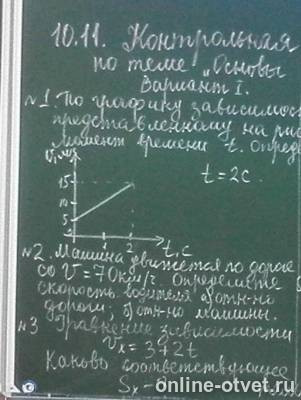 10.11. Контрольная
по теме „Основы
Вариант I.
№1. По графику зависимос
представленному на рис
момент времени t. Опреде
V, м/с
t = 2с.
15
10
5
1 2 t, с
№2. Машина движется по дороге
со V = 70км/ч. Определите
скорость водителя а) отн-но
дороги; б) отн-но машины.
№3 Уравнение зависимости
Vx = 3+2t
Каково соответствующее
Sx -
online-otvet.ru